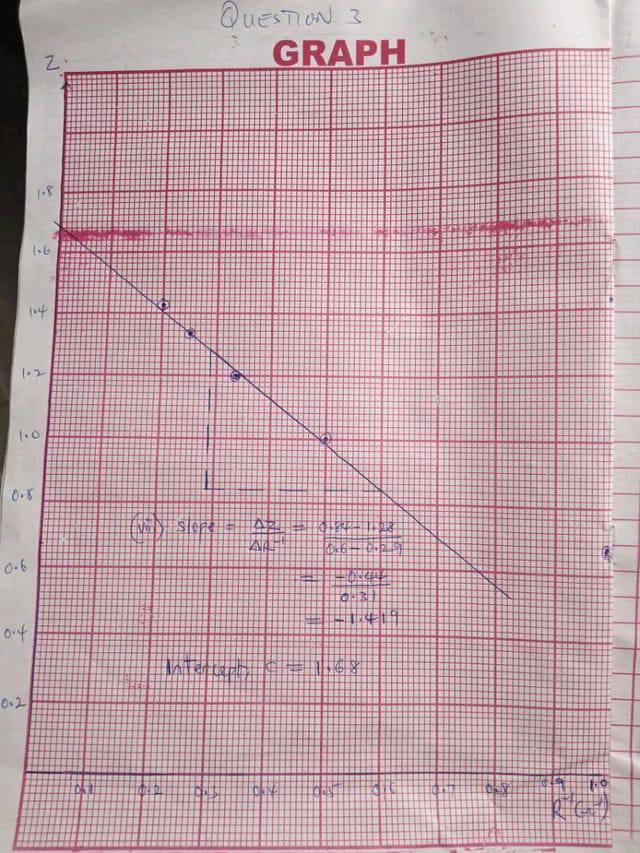 QUESTION 3
GRAPH
Z
1.8
1.6
1.4
1.2
1.0
0.8
(vii) slope = ΔZ / ΔR⁻¹ = 0.84 - 1.28 / 0.6 - 0.29
= -0.44 / 0.31
= -1.419
0.6
0.4
Intercept, c = 1.68
0.2
0.1 0.2 0.3 0.4 0.5 0.6 0.7 0.8 0.9 1.0
R⁻¹(Ω⁻¹)